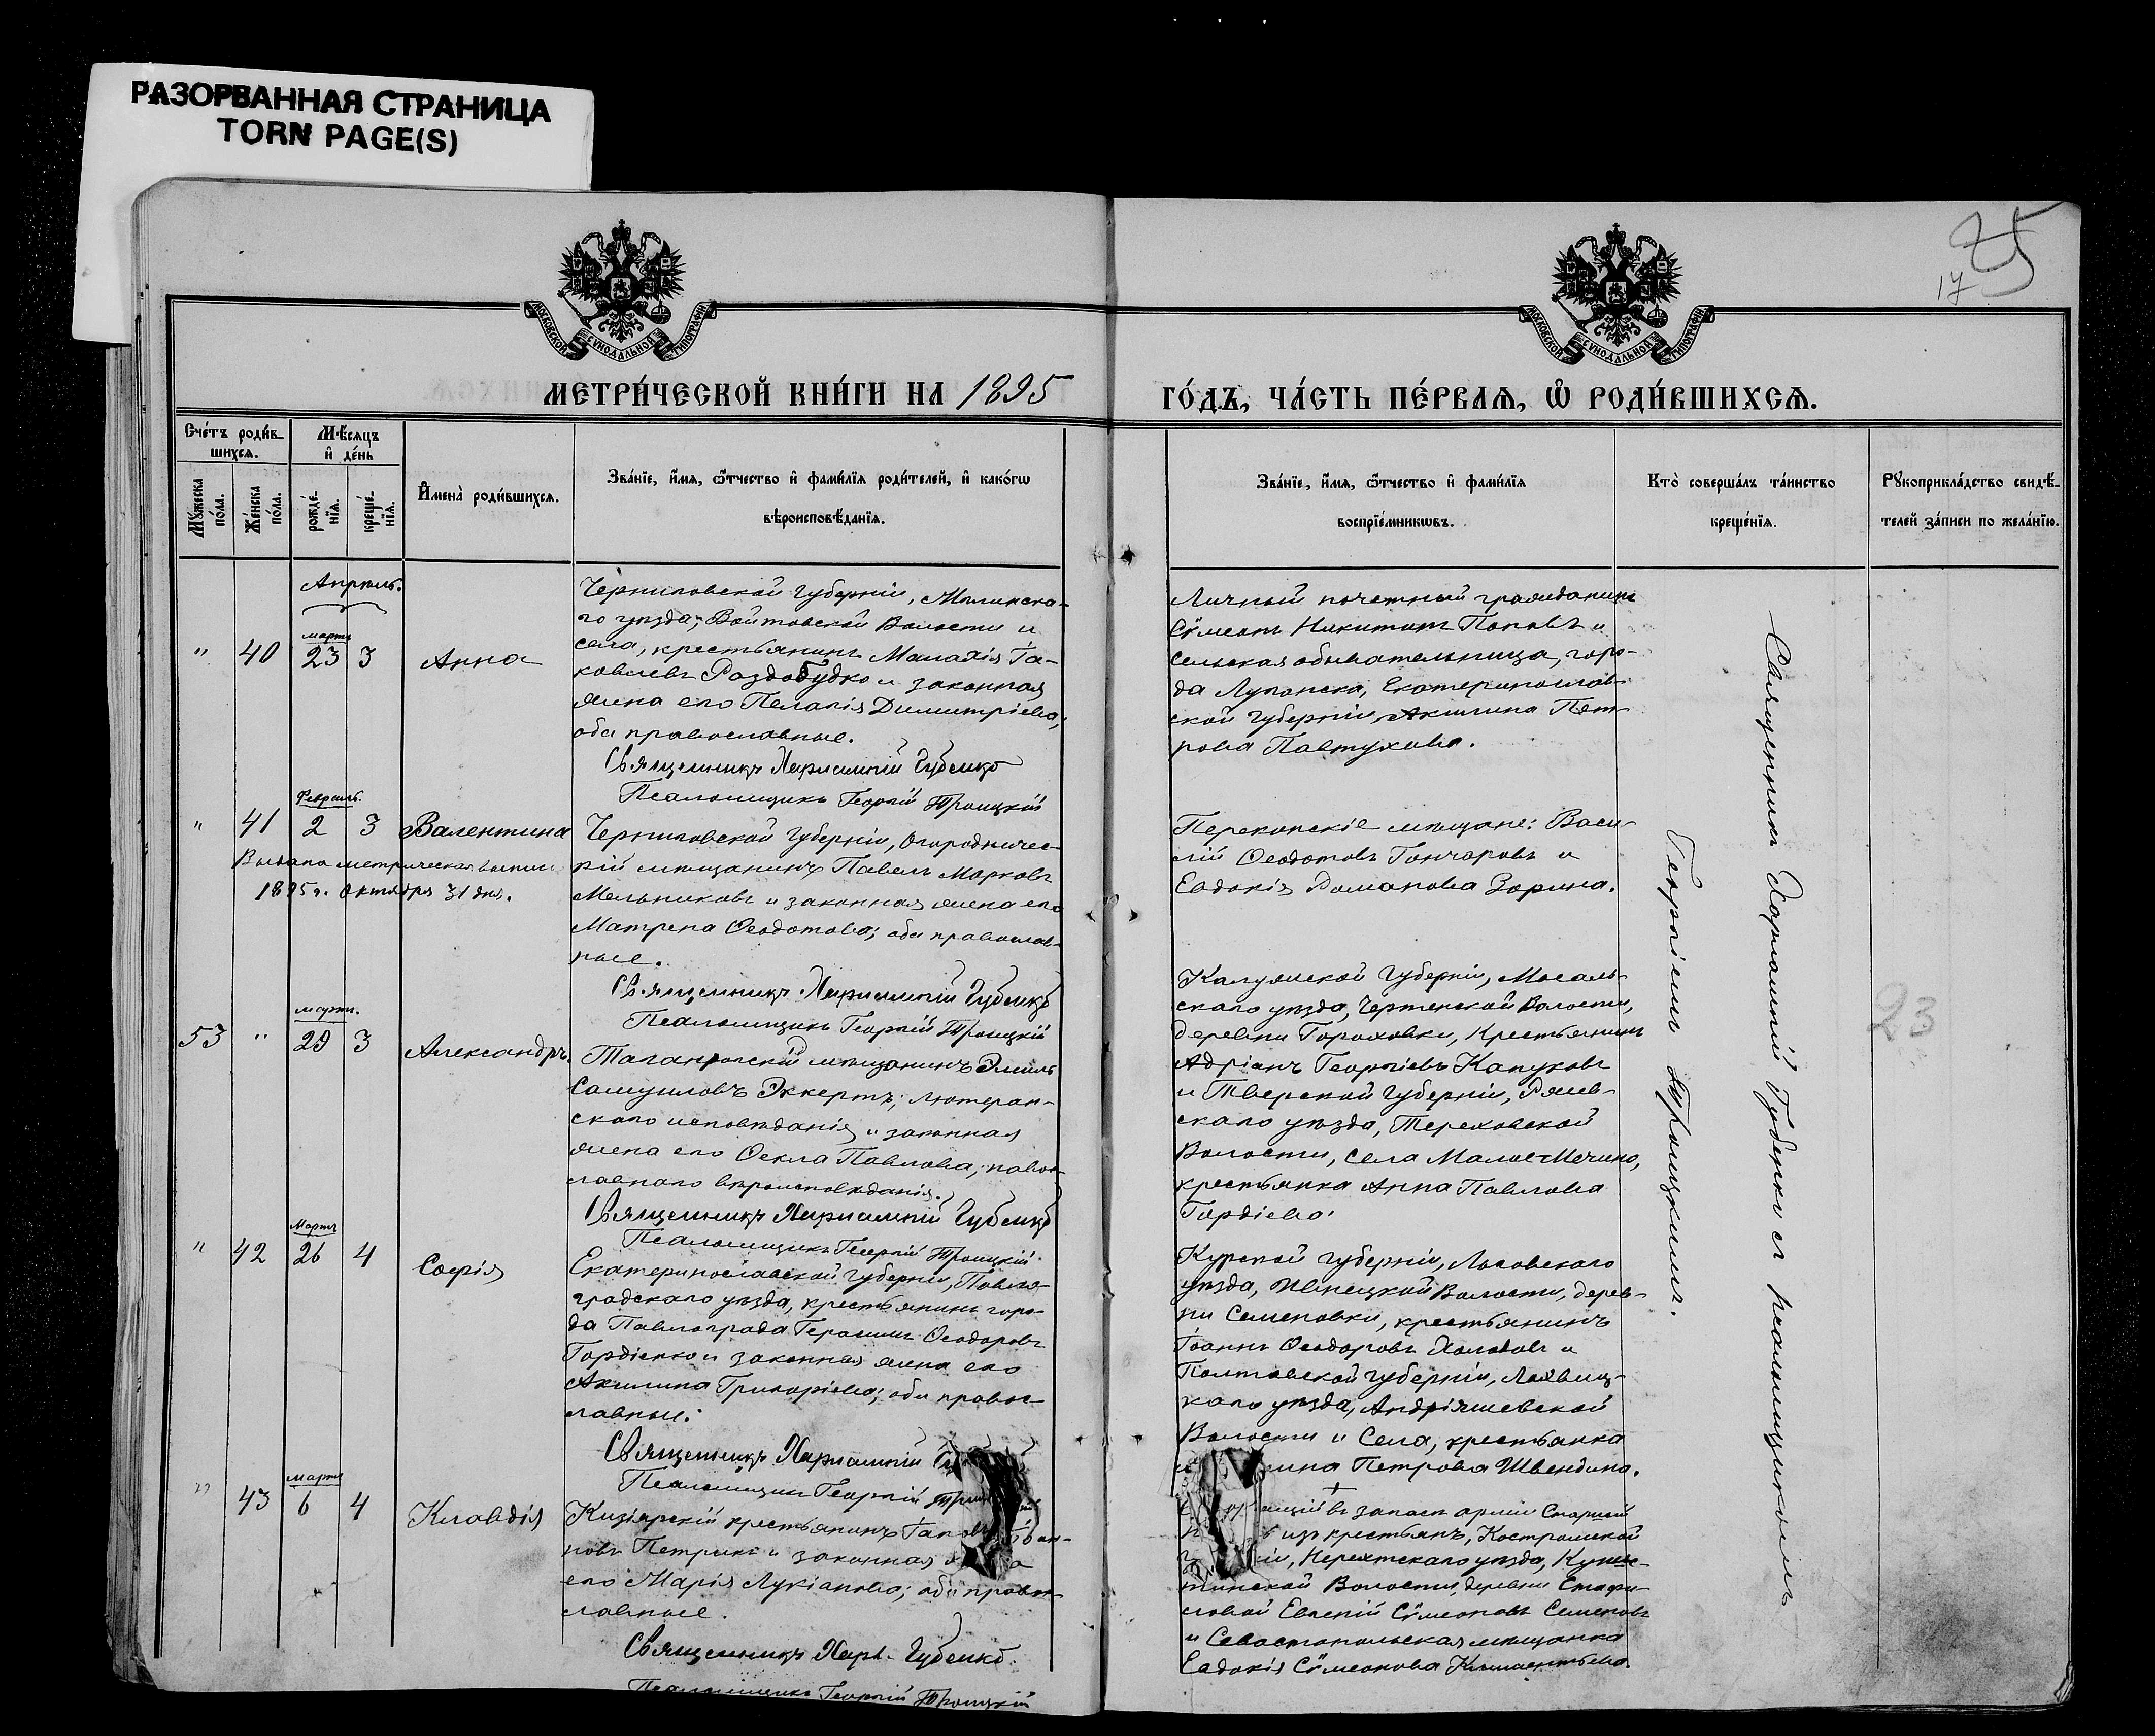 РАЗОРВАННАЯ СТРАНИЦА
TORN PAGE(S)
25
17
МОСКОВСКОЙ СѴНОДАЛЬНОЙ ТИПОГРАФІИ
МОСКОВСКОЙ СѴНОДАЛЬНОЙ ТИПОГРАФІИ
МЕТРИ́ЧЕСКОЙ КНИ́ГИ НА 1895
ГО́ДЪ, ЧА́СТЬ ПЕ́РВАЯ, Ѡ҆ РОДИ́ВШИХСЯ.
Сче́тъ роди́в-
шихся.
Мѣ́сяцъ
и҆ де́нь
Мꙋ́жеска
по́ла.
Же́нска
по́ла.
рожде́-
нїя.
креще́-
нїя.
И҆мена̀ роди́вшихся.
Зва́нїе, и҆́мя, ѻ҆́тчество и҆ фами́лїя роди́телей, и҆ како́гѡ
вѣроисповѣ́данїя.
Зва́нїе, и҆́мя, ѻ҆́тчество и҆ фами́лїя
воспрїе́мникѡвъ.
Кто̀ соверша́лъ та́инство
креще́нїя.
Рꙋкоприкла́дство свидѣ́-
телей за́писи по жела́нїю.
Апрѣль.
"
40
мартъ
23
3
Анна
Черниговской губерніи, Мглинска-
го уѣзда, Войтовской Волости и
села, крестьянинъ Малахія Іа-
ковлевъ Раздобудко и законная
жена его Пелагія Димитріева,
оба православные.
Священникъ Харлампій Губенко
Псаломщикъ Георгій Троицкій
Личный почетный гражданинъ
Сѵмеонъ Никитинъ Поповъ и
сельская обывательница, горо-
да Луганска, Екатеринослав-
ской губерніи, Акилина Пет-
рова Павтухова.
"
41
Февраль.
2
3
Валентина
Выдана метрическая выпись
1895 г. октября 31 дня.
Черниговской губерніи, Огородничес-
кій мѣщанинъ Павелъ Марковъ
Мельниковъ и законная жена его
Матрена Ѳеодотова; оба православ-
ные.
Священникъ Харлампій Губенко
Псаломщикъ Георгій Троицкій
Перекопскіе мѣщане: Васи-
лій Ѳеодотовъ Гончаровъ и
Евдокія Романова Зорина.
53
"
мартъ.
29
3
Александръ.
Таганрогскій мѣщанинъ Эмиль
Самуиловъ Эккертъ, лютеран-
скаго исповѣданія и законная
жена его Ѳекла Павлова, право-
славнаго вѣроисповѣданія.
Священникъ Харлампій Губенко
Псаломщикъ Георгій Троицкій
Калужской губерніи, Мосаль-
скаго уѣзда, Чертенской Волости,
деревни Гороховки, Крестьянинъ
Адріанъ Георгіевъ Капуковъ
и Тверской губерніи, Ржев-
скаго уѣзда, Тереховской
Волости, села Малое-Мочино,
крестьянка Анна Павлова
Гордіева.
23
"
42
Мартъ
26
4
Софія
Екатеринославской губерніи, Павло-
градскаго уѣзда, крестьянинъ горо-
да Павлограда Герасимъ Ѳеодоровъ
Гордіенко и законная жена его
Акилина Григоріева; оба право-
славные.
Священникъ Харлампій
Псаломщикъ Георгій
Курской губерніи, Льговскаго
уѣзда, Ивницкой Волости, дерев-
ни Семеновки, крестьянинъ
Іоаннъ Ѳеодоровъ Холодовъ и
Полтавской губерніи, Лохвиц-
каго уѣзда, Андріяшевской
Волости и Села, крестьянка
Петрова Швендина.
"
43
мартъ
6
4
Клавдія
Кизіярскій крестьянинъ
новъ Петрикъ и законная
его Марія Лукіанова; оба право-
славные.
Священникъ Харл. Губенко
Псаломщикъ Георгій Троицкій
въ запасѣ арміи Старшій
изъ крестьянъ, Костромской
Нерехтскаго уѣзда,
Волости, деревни
Евгеній Сѵмеоновъ Семеновъ
и Севастопольская мѣщанка
Евдокія Сѵмеонова Климентьева.
Священникъ Харлампій Губенко съ псаломщикомъ
Георгіемъ Троицкимъ.